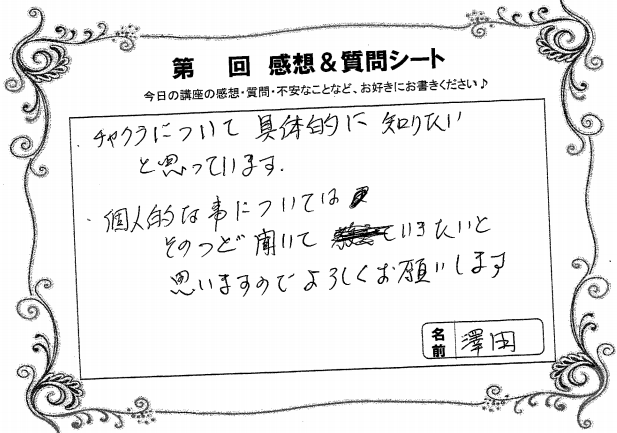 第 回 感想＆質問シート
今日の講座の感想・質問・不安なことなど、お好きにお書きください♪
・チャクラについて 具体的に 知りたい
と思っています.
・個人的な事については
そのつど 聞いて いきたいと
思いますのでよろしくお願いします
名前 澤田